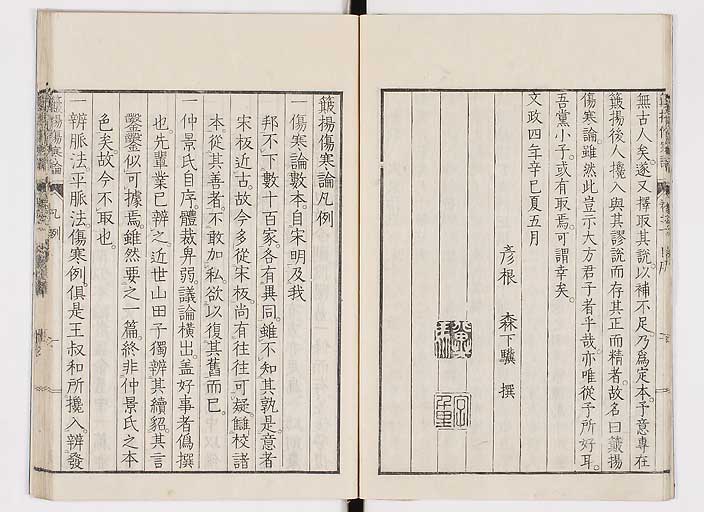 無古人矣。遂又擇取其說。以補不足。乃爲定本。予意專在
簸揚後人攙入。與其謬說。而存其正而精者。故名曰簸揚
傷寒論。雖然此豈示大方君子者乎哉。亦唯從予所好耳。
吾黨小子。或有取焉。可謂幸矣。
文政四年辛巳夏五月
彦根 森下驥 撰
簸揚傷寒論凡例
一傷寒論數本。自宋明及我
邦不下數十百家。各有異同。雖不知其孰是。意者
宋板近古。故今多從宋板。尚有往往可疑。讎校諸
本。從其善者。不敢加私。欲以復其舊而已。
一仲景氏自序。體裁卑弱。議論橫出。盖好事者僞撰
也。先輩業已辨之。近世山田子獨辨其續貂。其言
鑿鑿似可據焉。雖然要之一篇。終非仲景氏之本
色矣。故今不取也。
一辨脈法。平脈法。傷寒例。俱是王叔和所攙入。辨發
簸揚傷寒論 凡例